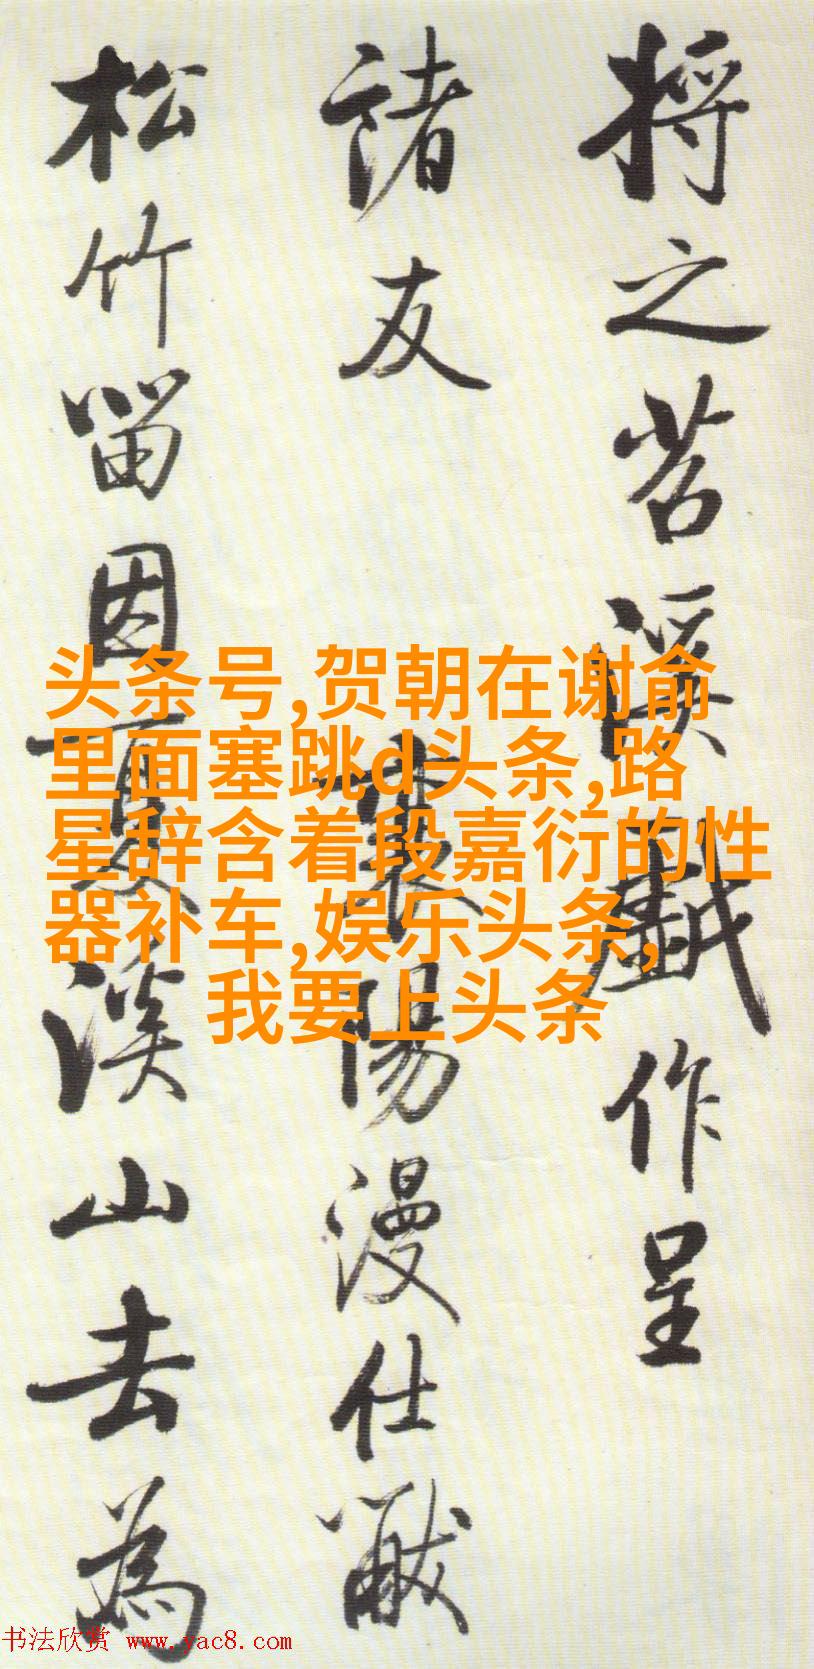 将之苕溪戲作呈
諸友
襄陽漫仕黻
松竹留因夏溪山去為
头条号,贺朝在谢俞
里面塞跳d头条,路
星辞含着段嘉衍的性
器补车,娱乐头条,
我要上头条
书法欣赏 www.yac8.com